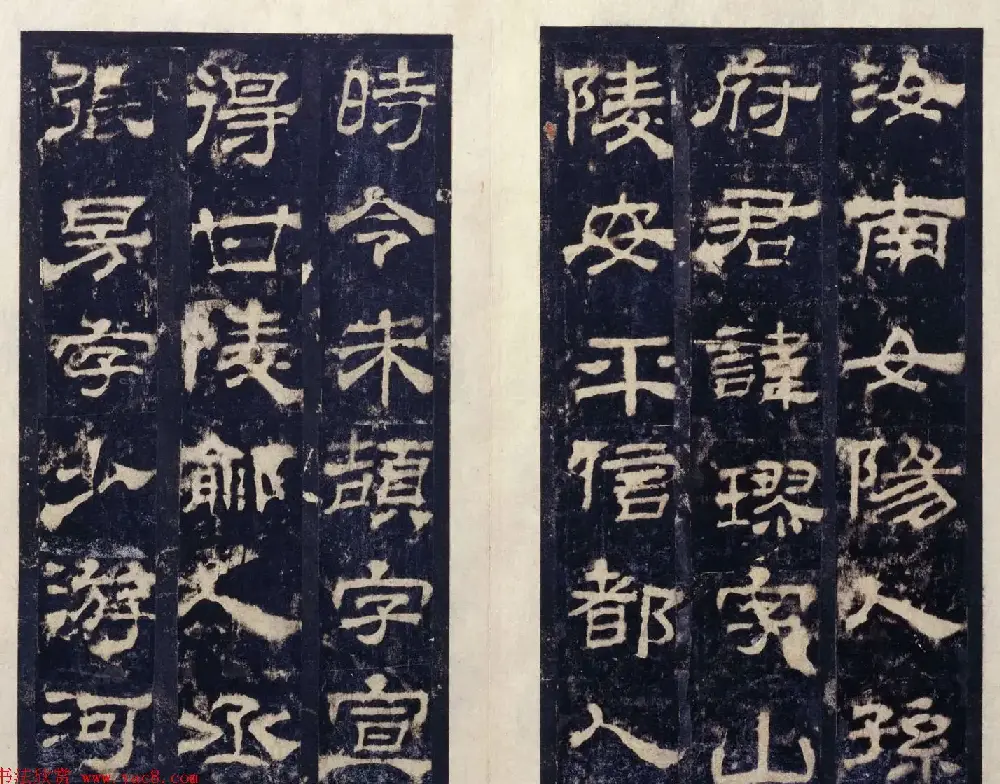 汝南女陽人孫
府君諱璆字山
陵安平信都人
時令朱頡字宣
得甘陵鄃人丞
張昉字少游河
书法欣赏 www.yac8.com